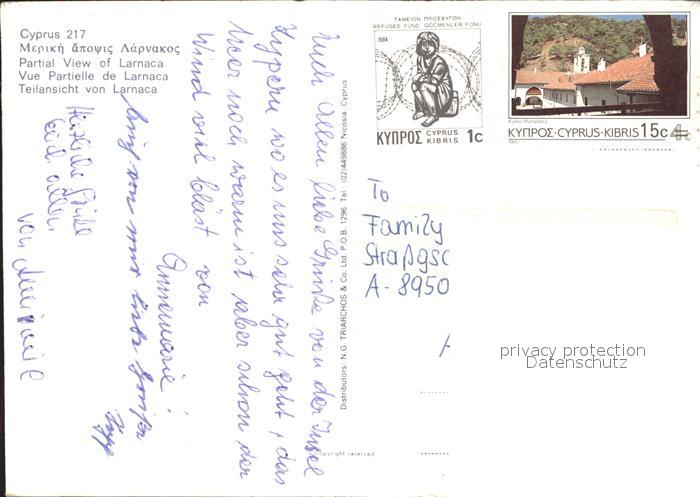 Cyprus 217
Μερική ἄποψις Λάρνακος
Partial View of Larnaca
Vue Partielle de Larnaca
Teilansicht von Larnaca
ΤΑΜΕΙΟΝ ΠΡΟΣΦΥΓΩΝ
REFUGEE FUND GÖÇMENLER FONU
1984
ΚΥΠΡΟΣ CYPRUS KIBRIS 1c
Kykko Monastery
ΚΥΠΡΟΣ·CYPRUS·KIBRIS 15c 4c
1985
Euch Allen liebe Grüße von der Insel
Zypern wo es uns sehr gut geht, das
Meer noch warm ist aber schon der
Wind viel bläst von
Annemarie!
auch von mir liebe Grüße
Herzliche Grüße
Euch allen
von
Distributors: N.G. TRIARCHOS & Co. Ltd. P.O.B. 1296. Tel.: (02)449886 Nicosia, Cyprus
Copyright reserved
To
Family
Straßgsc
A-8950
privacy protection
Datenschutz